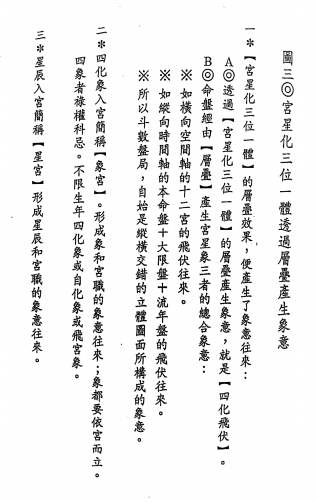 圖三◎宮星化三位一體透過層疊產生象意
一＊【宮星化三位一體】的層疊效果，便產生了象意往來：
A◎透過【宮星化三位一體】的層疊產生象意，就是【四化飛伏】。
B◎命盤經由【層疊】產生宮星象三者的總合象意：
※如橫向空間軸的十二宮的飛伏往來。
※如縱向時間軸的本命盤＋大限盤＋流年盤的飛伏往來。
※所以斗數盤局，自始是縱橫交錯的立體圖面所構成的象意。
二＊四化象入宮簡稱【象宮】。形成象和宮職的象意往來；象都要依宮而立。
四象者祿權科忌。不限生年四化象或自化象或飛宮象。
三＊星辰入宮簡稱【星宮】形成星辰和宮職的象意往來。